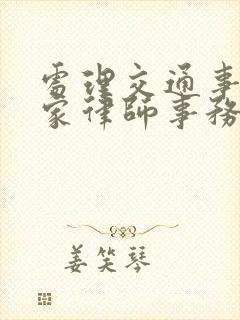 處理交通事
家律師事務
姜笑琴